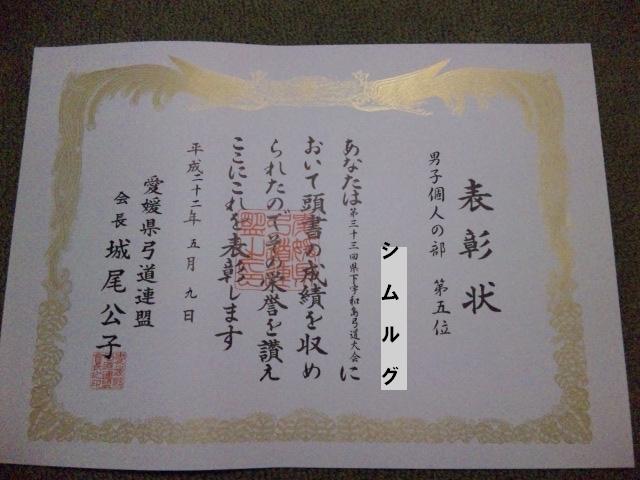 表彰状
男子個人の部 第五位
シムルグ
あなたは第三十三回県下宇和島弓道大会に
おいて頭書の成績を収め
られたのでその栄誉を讃え
ここにこれを表彰します
平成二十二年五月九日
愛媛県弓道連盟
会長 城尾公子